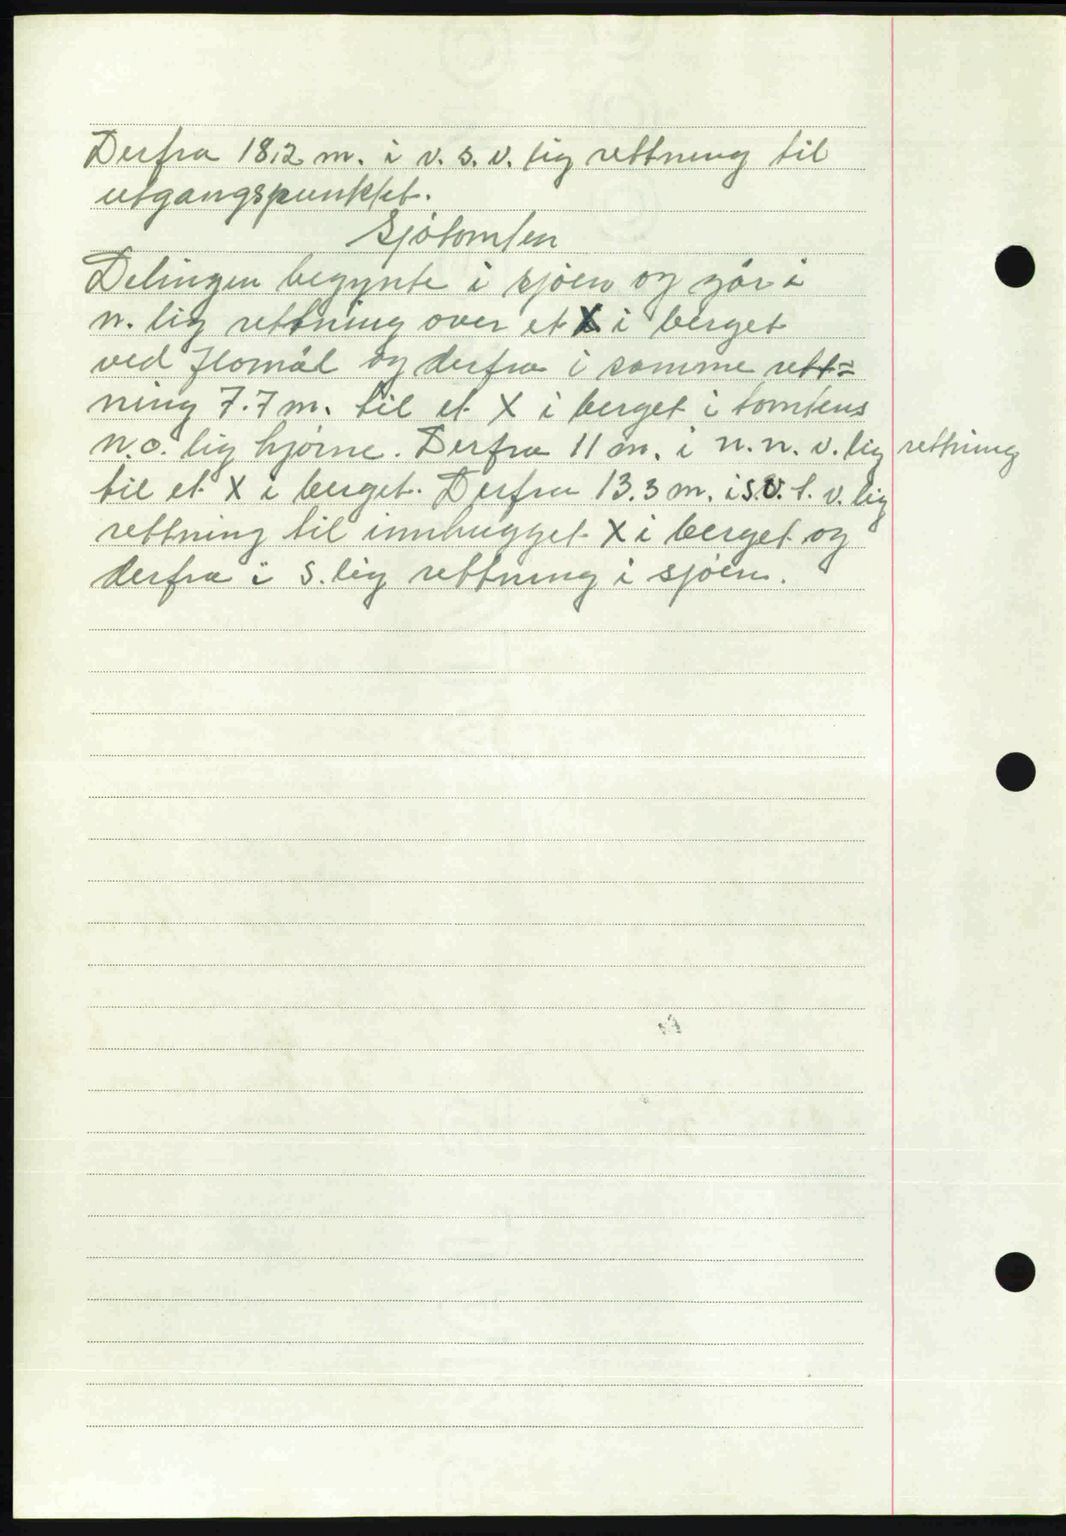 Derfra 18,2 m. i v. s. v. lig rettning til
utgangspunktet.
Sjøtomten
Delingen begynte i sjøen og går i
n. lig rettning over et X i berget
ved flomål og derfra i samme rett=
ning 7.7 m. til et X i berget i tomtens
n.o. lig hjørne. Derfra 11 m. i n. n. v. lig rettning
til et X i berget. Derfra 13.3 m. i s.v. t. v. lig
rettning til innhugget X i berget og
derfra i s. lig rettning i sjøen.